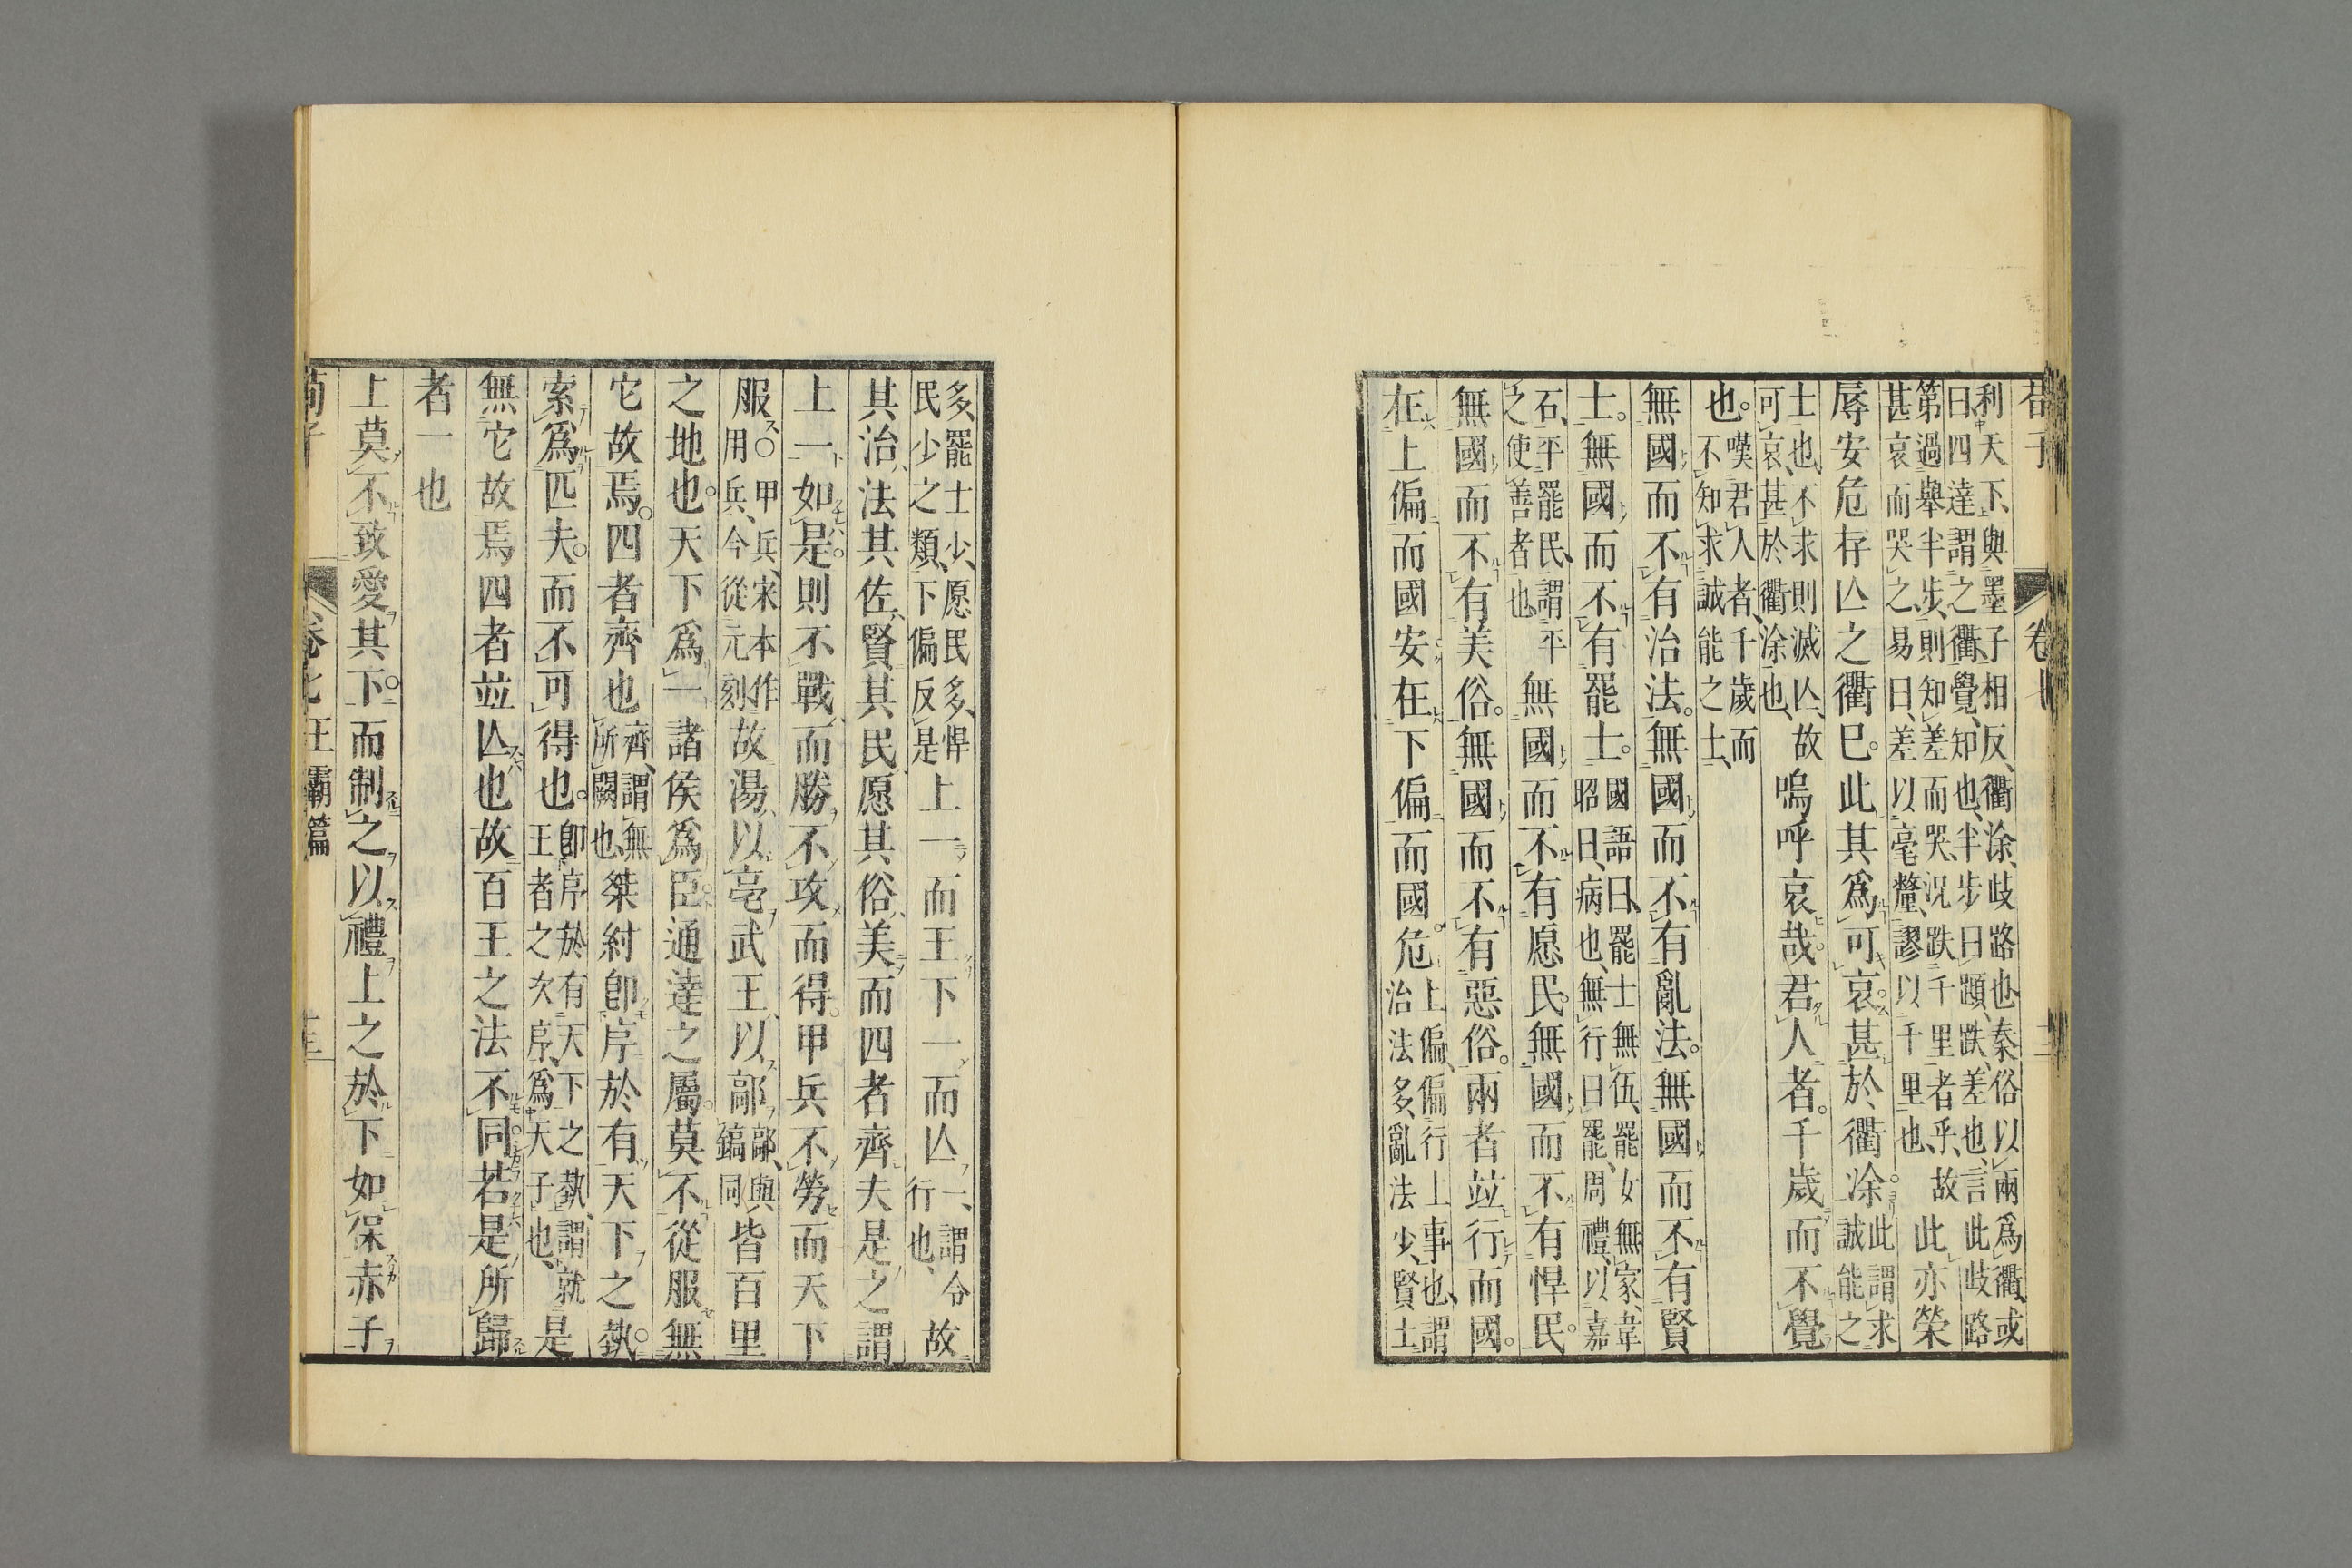 荀子 卷七
利天下、與墨子相反、衢涂、歧路也、秦俗以兩爲衢、或
曰、四達謂之衢、覺、知也、半步曰蹞、跌、差也、言此歧路
第過舉半步、則知差而哭、況跌千里者乎、故
甚哀而哭之、易曰、差以毫釐、謬以千里也、
此亦榮
辱安危存亾之衢已。此其爲可哀。甚於衢涂。
此謂求
誠能之
士也、不求則滅亾、故
可哀、甚於衢涂也、
嗚呼哀哉。君人者。千歲而不覺
也。
嘆君人者、千歲而
不知求誠能之士、
無國而不有治法。無國而不有亂法。無國而不有賢
士。無國而不有罷士。
國語曰、罷士無伍、罷女無家、韋
昭曰、病也、無行曰罷、周禮、以嘉
石、平罷民、謂平
之使善者也、
無國而不有愿民。無國而不有悍民。
無國而不有美俗。無國而不有惡俗。兩者竝行而國。
在上偏而國安。在下偏而國危。
上偏、偏行上事也、謂
治法多、亂法少、賢士
多、罷士少、愿民多、悍
民少之類、下偏反是
上一而王。下一而亾。
一、謂令
行也、
故
其治法。其佐賢。其民愿。其俗美。而四者齊。夫是之謂
上一。如是。則不戰而勝。不攻而得。甲兵不勞。而天下
服。
○甲兵、宋本作
用兵、今從元刻
故湯以亳。武王以鄗。
鄗、與
鎬同
皆百里
之地也。天下爲一。諸侯爲臣。通達之屬。莫不從服。無
它故焉。四者齊也。
齊、謂無
所闕也、
桀紂卽序於有天下之埶。
索爲匹夫。而不可得也。
卽序於有天下之埶、謂就
王者之次序、爲天子也、
是
無它故焉。四者竝亾也。故百王之法不同。若是所歸
者一也
上莫不致愛其下。而制之以禮。上之於下。如保赤子
荀子 卷七 王霸篇